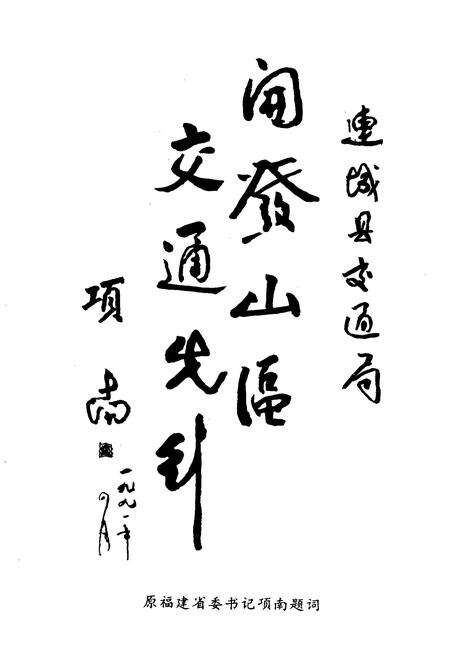 連城县交通局
開發山區
交通先行
項南
一九九一年
四月
原福建省委书记项南题词